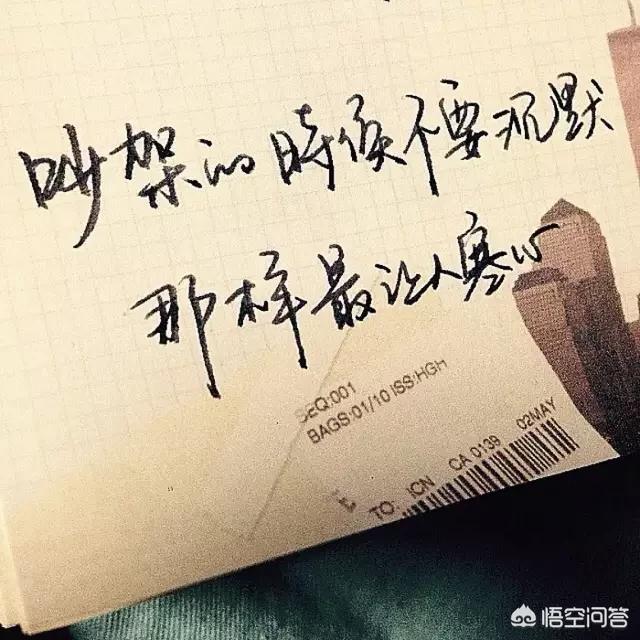 吵架的時候不要沉默
那样最让人寒心
SEQ:001
BAGS:01/10 ISS:HGH
TO: ICN CA 0139 02MAY
悟空问答